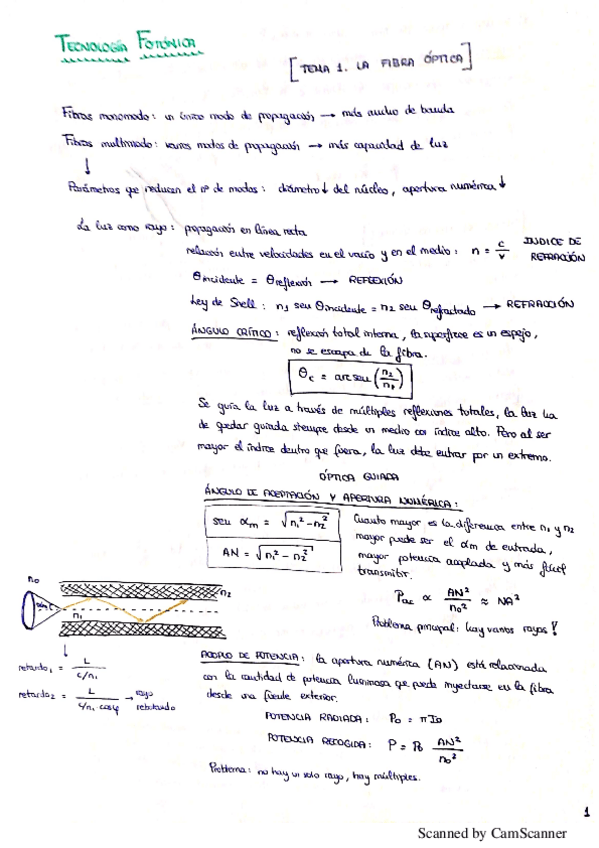 TECNOLOGÍA FOTÓNICA
[TEMA 1. LA FIBRA ÓPTICA]
Fibras monomodo: un único modo de propagación → más ancho de banda
Fibras multimodo: varios modos de propagación → más capacidad de luz
↓
Parámetros que reducen el nº de modos: diámetro ↓ del núcleo, apertura numérica ↓
La luz como rayo: propagación en línea recta
relación entre velocidades en el vacío y en el medio: n = c/v INDICE DE REFRACCIÓN
θincidente = θreflexión → REFLEXIÓN
Ley de Snell: n1 sen θincidente = n2 sen θrefractado → REFRACCIÓN
ÁNGULO CRÍTICO: reflexión total interna, la superficie es un espejo,
no se escapa de la fibra.
θc = arcsen (n2/n1)
Se guía la luz a través de múltiples reflexiones totales, la luz ha
de quedar guiada siempre desde un medio con índice alto. Pero al ser
mayor el índice dentro que fuera, la luz debe entrar por un extremo.
ÓPTICA GUIADA
ÁNGULO DE ACEPTACIÓN Y APERTURA NUMÉRICA:
sen αm = √(n1² - n2²)
AN = √(n1² - n2²)
Cuanto mayor es la diferencia entre n1 y n2
mayor puede ser el αm de entrada,
mayor potencia acoplada y más fácil
transmitir.
Pac ∝ AN²/n0² ≈ NA²
Problema principal: hay varios rayos!
n0
αm
n1
n2
retardo1 = L / c/n1
retardo2 = L / c/n1 cosφ → rayo
rebotando
ACOPLO DE POTENCIA: la apertura numérica (AN) está relacionada
con la cantidad de potencia luminosa que puede inyectarse en la fibra
desde una fuente exterior.
POTENCIA RADIADA: P0 = πI0
POTENCIA RECOGIDA: P = P0 AN²/n0²
Problema: no hay un solo rayo, hay múltiples.
1
Scanned by CamScanner